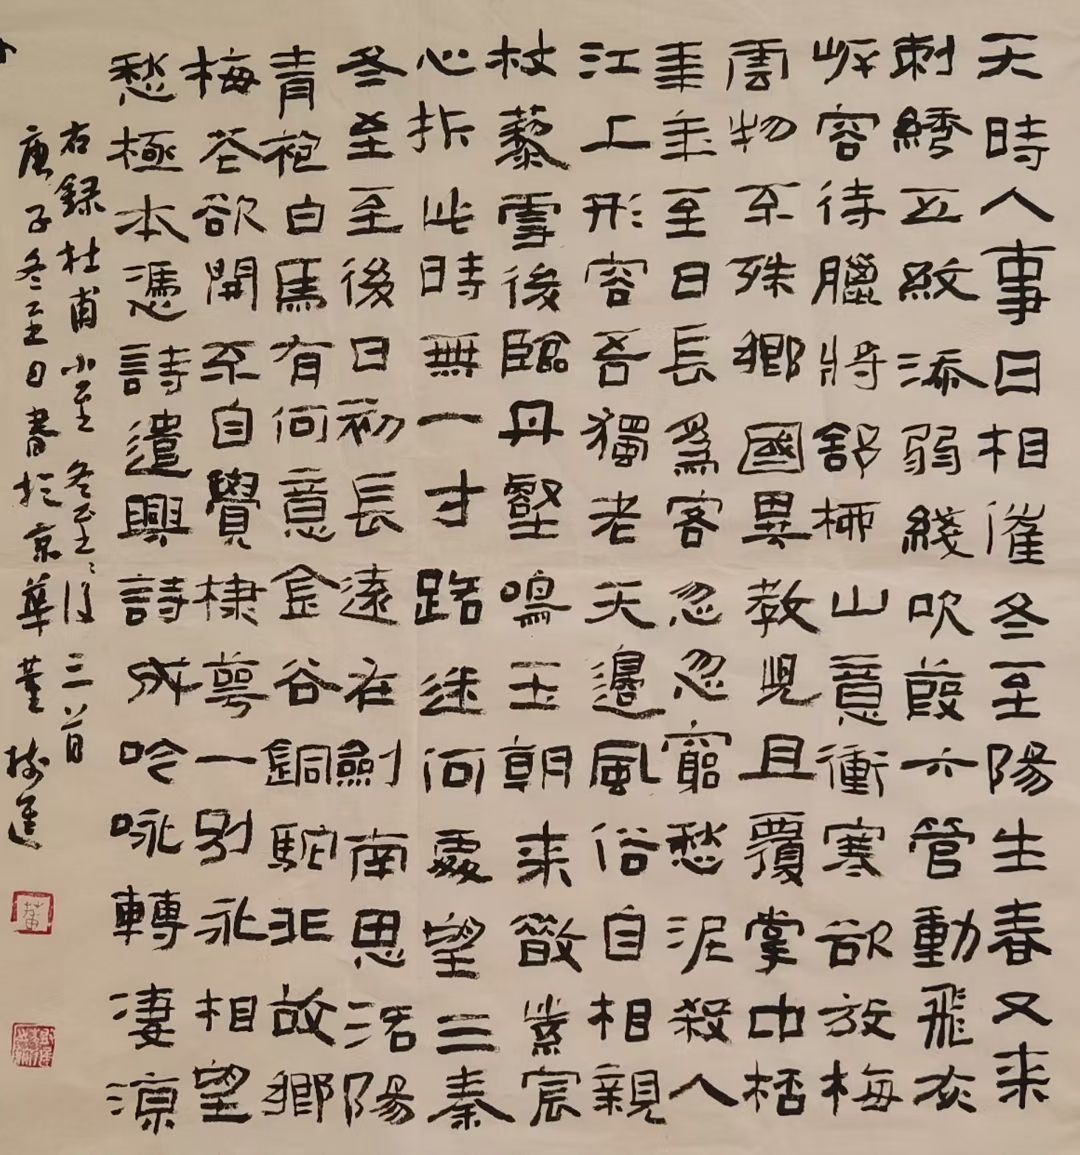 天時人事日相催冬至陽生春又来
刺綉五紋添弱綫吹葭六管動飛灰
岸容待臘將舒柳山意衝寒欲放梅
雲物不殊鄉國異教兒且覆掌中桮
年年至日長爲客忽忽窮愁泥殺人
江上形容吾獨老天邊風俗自相親
杖藜雪後臨丹壑鳴玉朝来散紫宸
心折此時無一寸路迷何處望三秦
冬至至後日初長遠在劍南思洛陽
青袍白馬有何意金谷銅駝非故鄉
梅花欲開不自覺棣萼一別永相望
愁極本憑詩遣興詩成吟咏轉淒凉
右録杜甫小至冬至至后三首
庚子冬至日書於京華董
董